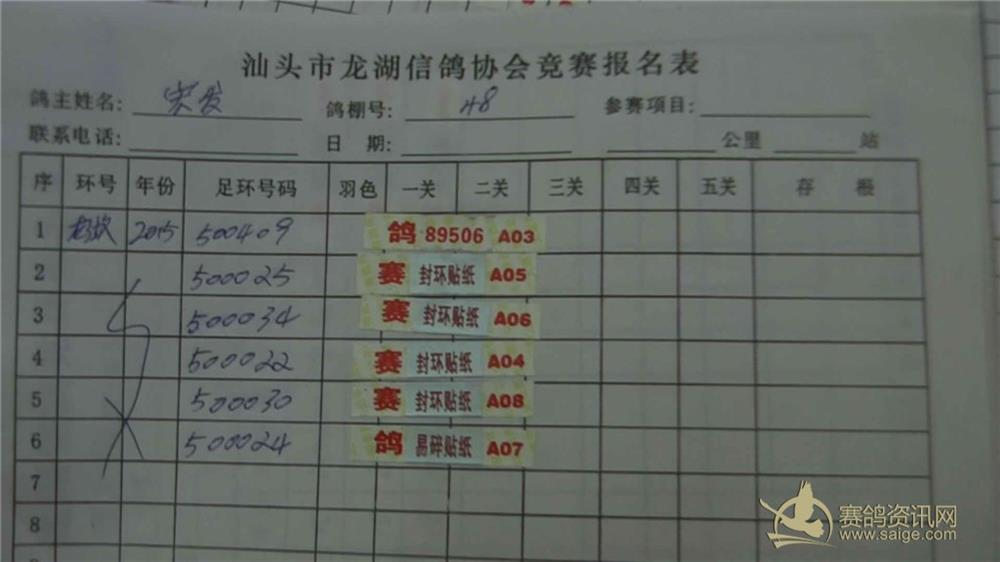 汕头市龙湖信鸽协会竞赛报名表
鸽主姓名: 鸽棚号: 48 参赛项目:
联系电话: 日 期: 公里 站
序 环号 年份 足环号码 羽色 一关 二关 三关 四关 五关 存 棚
1 2015 500409 鸽 89506 A03
2 500025 赛 封环贴纸 A05
3 500034 赛 封环贴纸 A06
4 500022 赛 封环贴纸 A04
5 500030 赛 封环贴纸 A08
6 500024 鸽 易碎贴纸 A07
7
8
赛鸽资讯网
www.saige.com